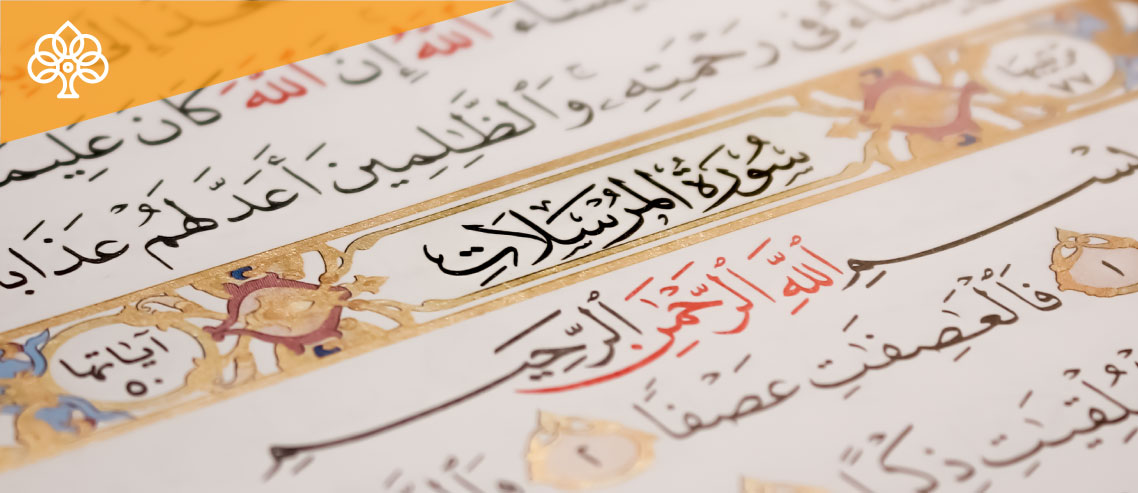 ٱللَّهُ إِنَّ ٱللَّهَ كَانَ
فِى رَحْمَتِهِۦ ۚ وَٱلظَّٰلِمِينَ أَعَدَّ لَهُمْ عَذَابًا
ترتيبها ٧٧ سُورَةُ المُرْسَلَاتِ آيَاتها ٥٠
بِسْمِ ٱللَّهِ ٱلرَّحْمَٰنِ ٱلرَّحِيمِ
١ فَٱلْعَٰصِفَٰتِ عَصْفًا ٢
ذِكْرًا